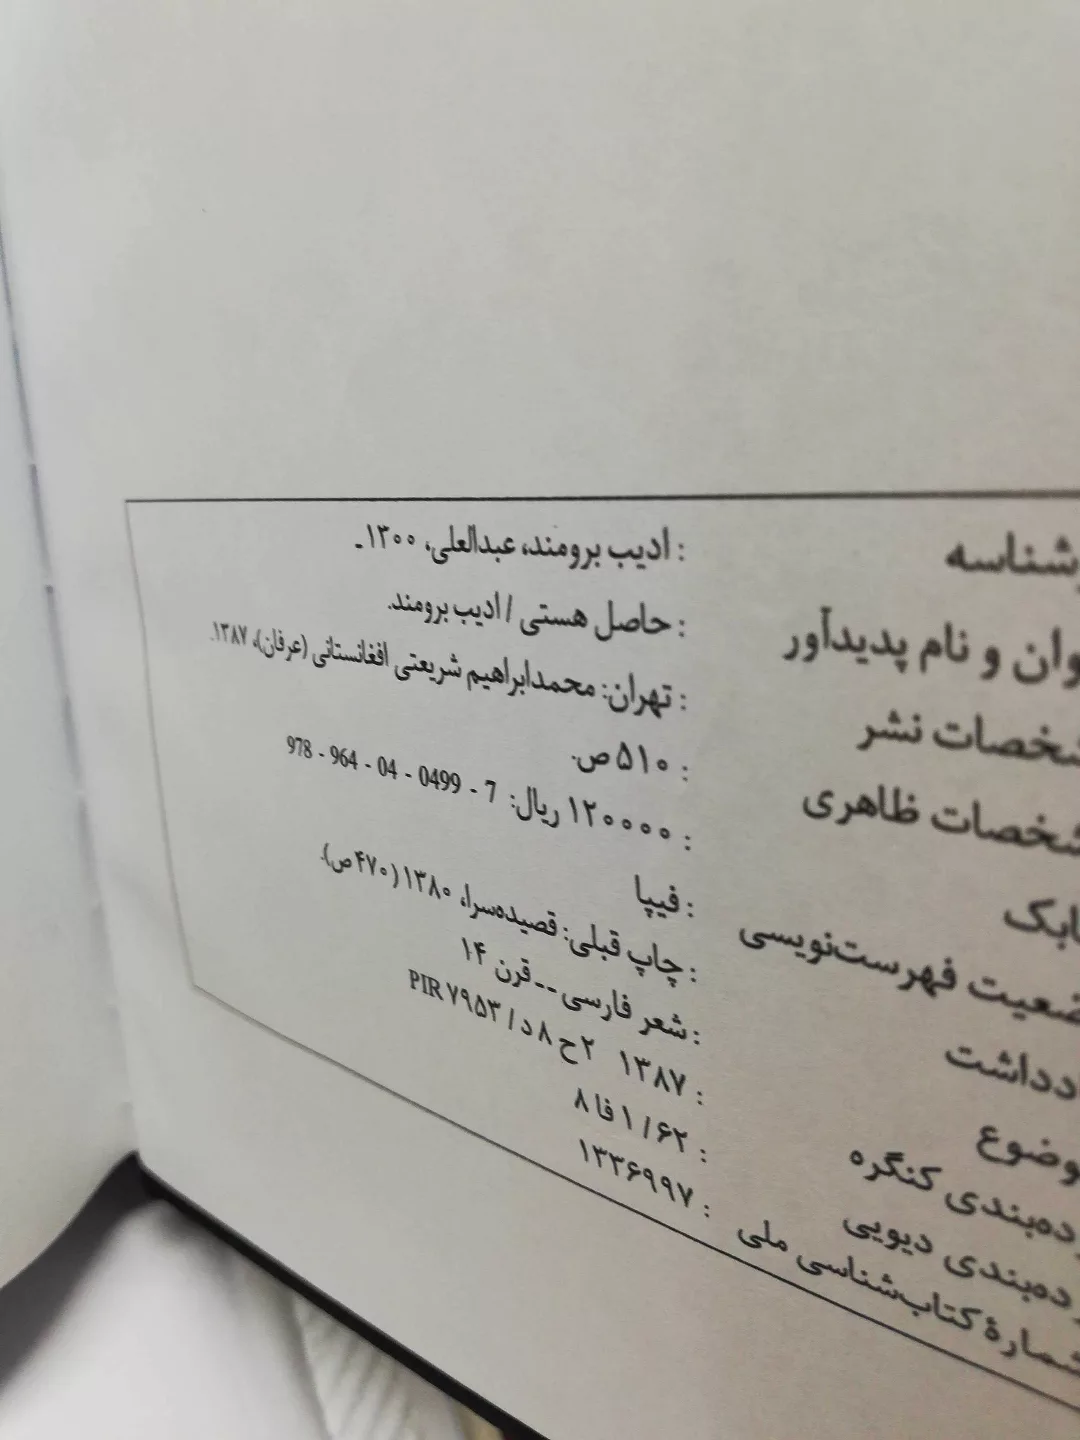 شناسه : ادیب برومند، عبدالعلی، ۱۳۰۰ـ
وان و نام پدیدآور : حاصل هستی / ادیب برومند.
خصات نشر : تهران: محمدابراهیم شریعتی افغانستانی (عرفان)، ۱۳۸۷.
خصات ظاهری : ۵۱۰ ص.
ابک : ۱۲۰۰۰۰ ریال: 978 - 964 - 04 - 0499 - 7
ضعیت فهرست‌نویسی : فیپا
دداشت : چاپ قبلی: قصیده‌سرا، ۱۳۸۰ (۴۷۰ص).
وضوع : شعر فارسی -- قرن ۱۴
ده‌بندی کنگره : ۱۳۸۷ ۲ح ۸د / PIR ۷۹۵۳
ده‌بندی دیویی : ۸فا۱/۶۲
ماره کتاب‌شناسی ملی : ۱۳۳۶۹۹۷